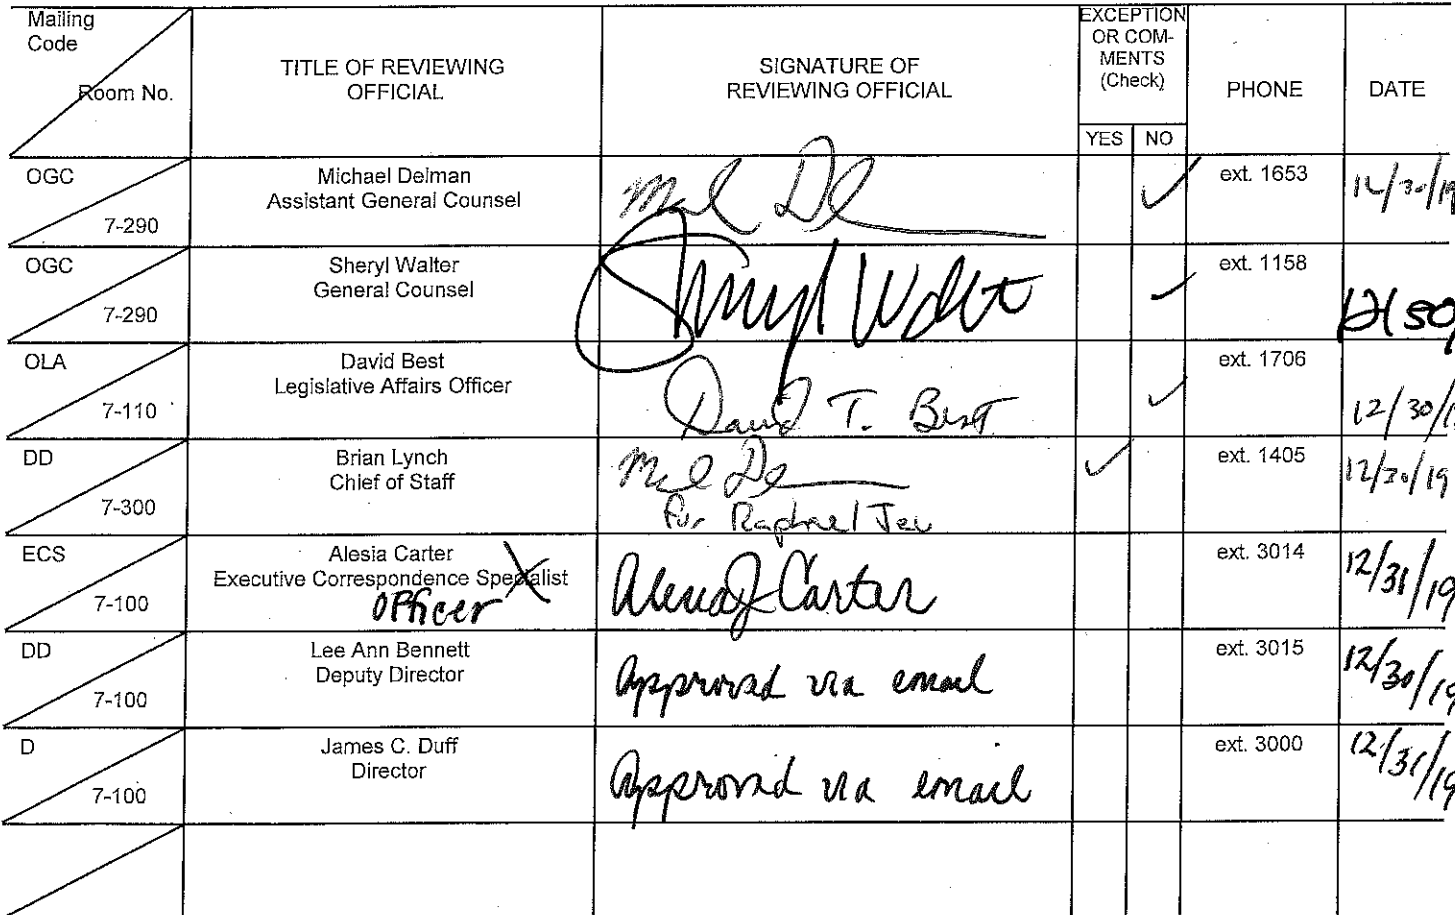 Mailing
Code
Room No.
TITLE OF REVIEWING
OFFICIAL
SIGNATURE OF
REVIEWING OFFICIAL
EXCEPTION
OR COM-
MENTS
(Check)
YES NO
PHONE
DATE
OGC
7-290
Michael Delman
Assistant General Counsel
ext. 1653
12/30/19
OGC
7-290
Sheryl Walter
General Counsel
Sheryl Walter
ext. 1158
12/30/
OLA
7-110
David Best
Legislative Affairs Officer
David T. Best
ext. 1706
12/30/1
DD
7-300
Brian Lynch
Chief of Staff
For Raphael
ext. 1405
12/30/19
ECS
7-100
Alesia Carter
Executive Correspondence Specialist
officer
Alesia J Carter
ext. 3014
12/31/19
DD
7-100
Lee Ann Bennett
Deputy Director
Approved via email
ext. 3015
12/30/19
D
7-100
James C. Duff
Director
Approved via email
ext. 3000
12/31/19